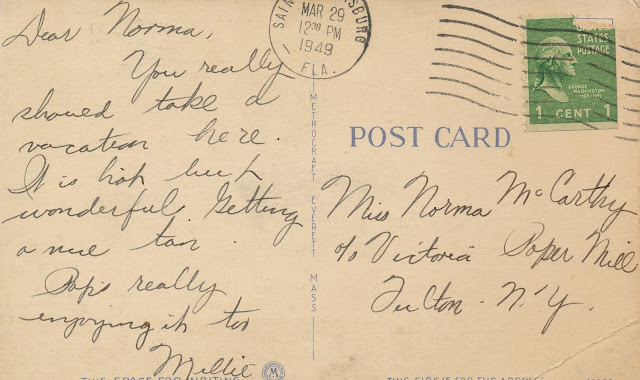 Dear Norma,
You really
should take a
vacation here.
It is hot but
wonderful. Getting
a nice tan.
Pop's really
enjoying it too
Millie
MAR 29
12 30 PM
1949
FLA.
STATES
POSTAGE
GEORGE
WASHINGTON
1 CENT 1
POST CARD
METROCRAFT EVERETT MASS
Miss Norma McCarthy
c/o Victoria Paper Mill
Fulton - N.Y.
THIS SPACE FOR WRITING
M